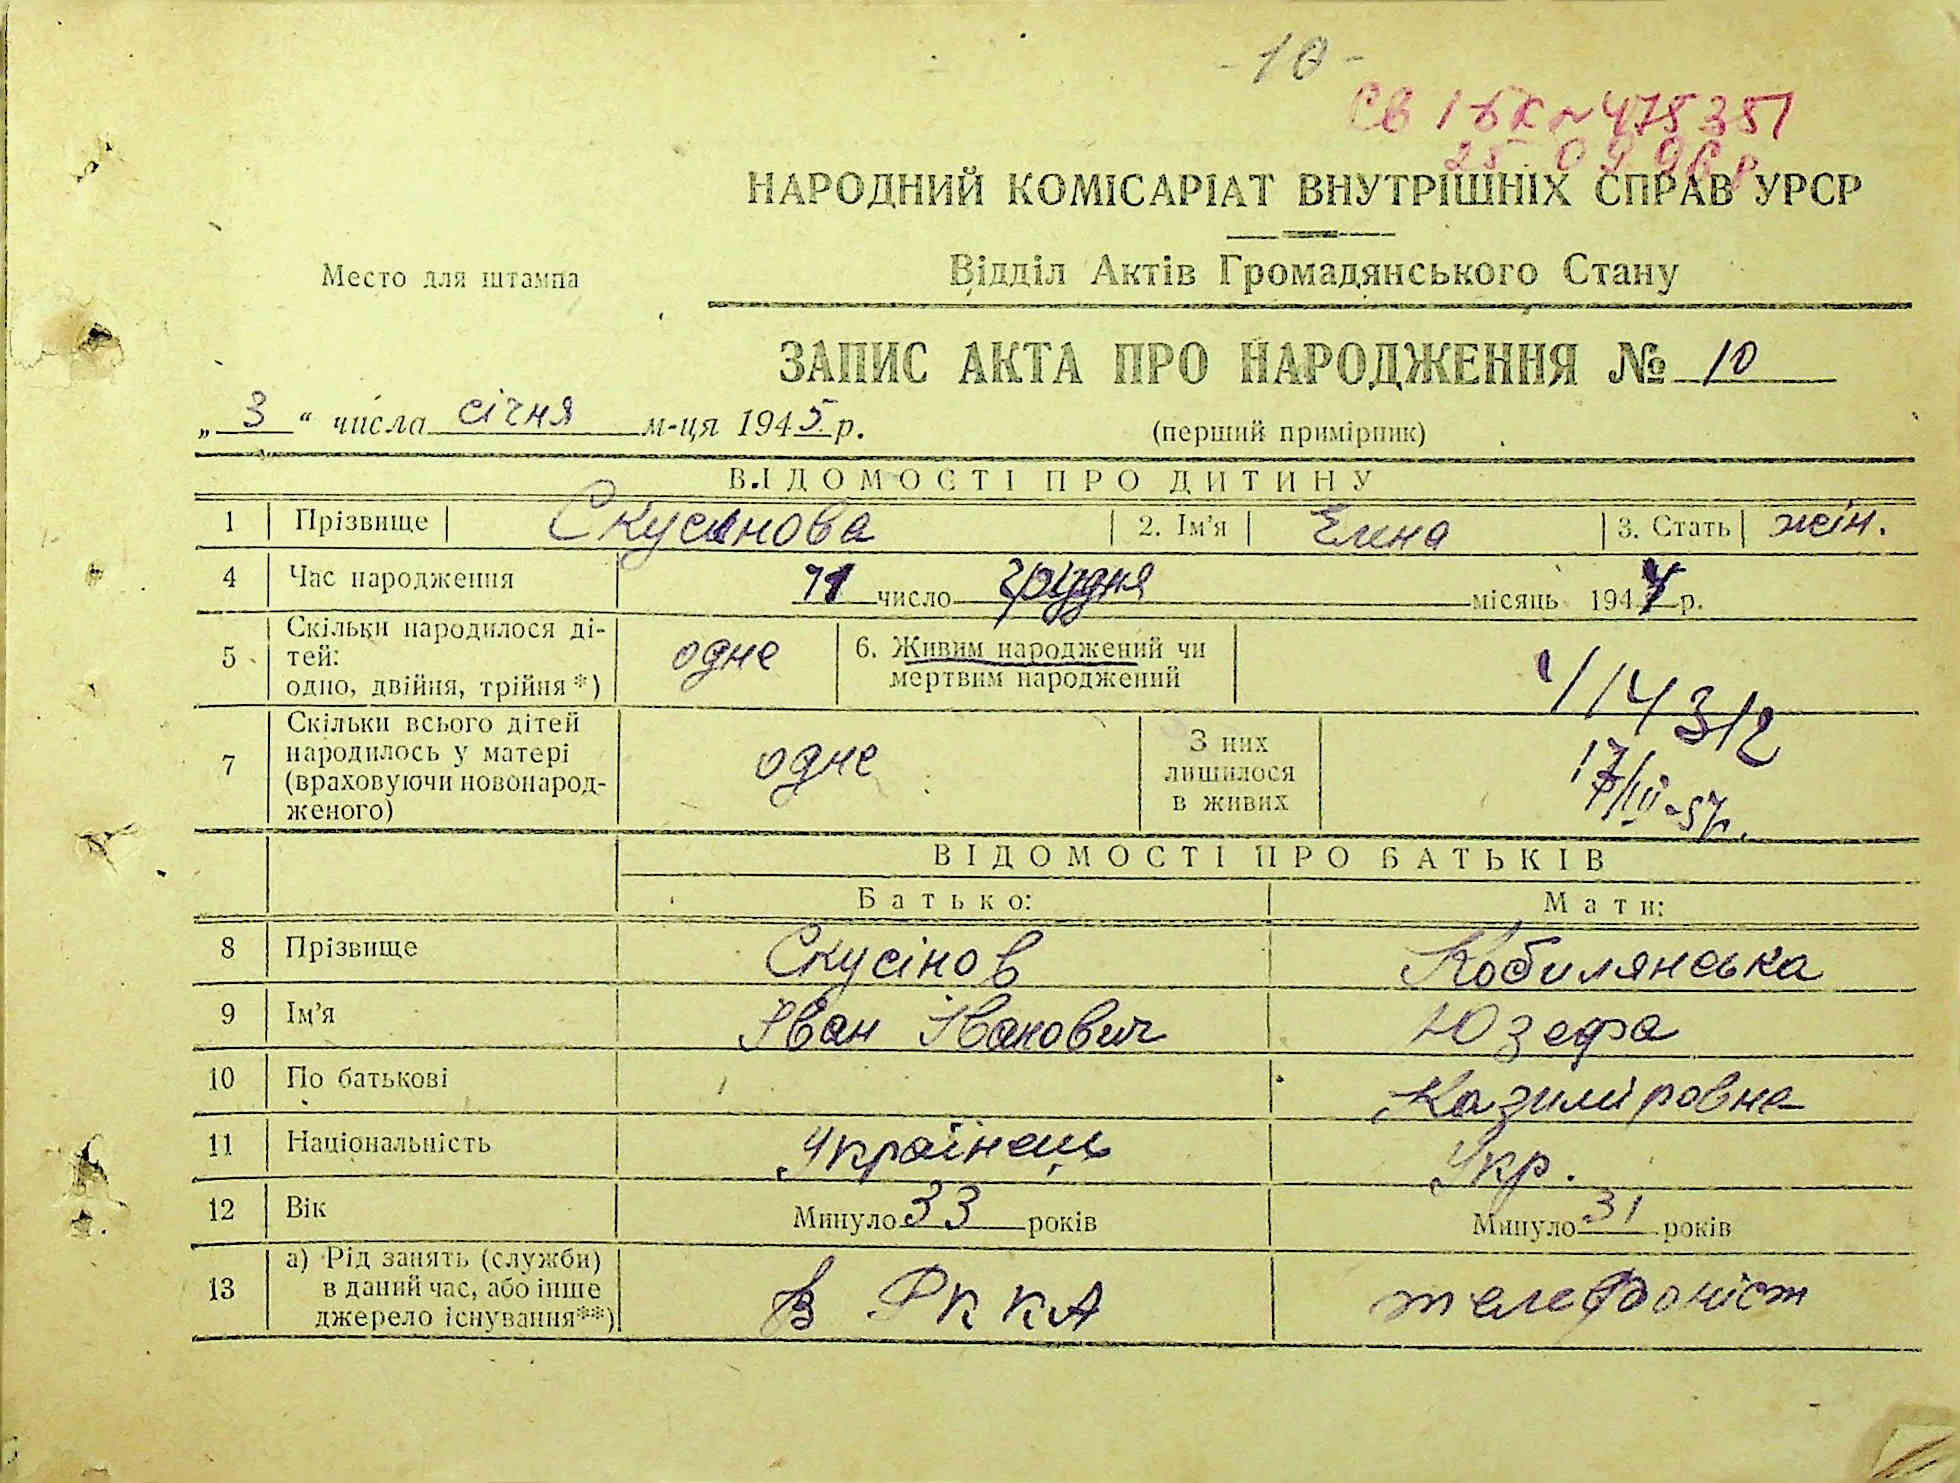 - 10 -
Св 1 БК № 475351
25 09 96 р
НАРОДНИЙ КОМІСАРІАТ ВНУТРІШНІХ СПРАВ УРСР
Место для штампа
Відділ Актів Громадянського Стану
ЗАПИС АКТА ПРО НАРОДЖЕННЯ № 10
„ 3 “ числа січня м-ця 1945 р.
(перший примірник)
ВІДОМОСТІ ПРО ДИТИНУ
1 Прізвище Скусінова 2. Ім'я Елена 3. Стать жін.
4 Час народження число грудня місяць 1944 р.
5 Скільки народилося ді-
тей:
одно, двійня, трійня *) одне 6. Живим народжений чи
мертвим народжений
7 Скільки всього дітей
народилось у матері
(враховуючи новонарод-
женого) одне З них
лишилося
в живих
17/III-57р.
ВІДОМОСТІ ПРО БАТЬКІВ
Батько: Мати:
8 Прізвище Скусінов Кобилянська
9 Ім'я Іван Іванович Юзефа
10 По батькові Казиміровна
11 Національність Українець Укр.
12 Вік Минуло 33 років Минуло 31 років
13 а) Рід занять (служби)
в даний час, або інше
джерело існування**) в РККА телефоніст